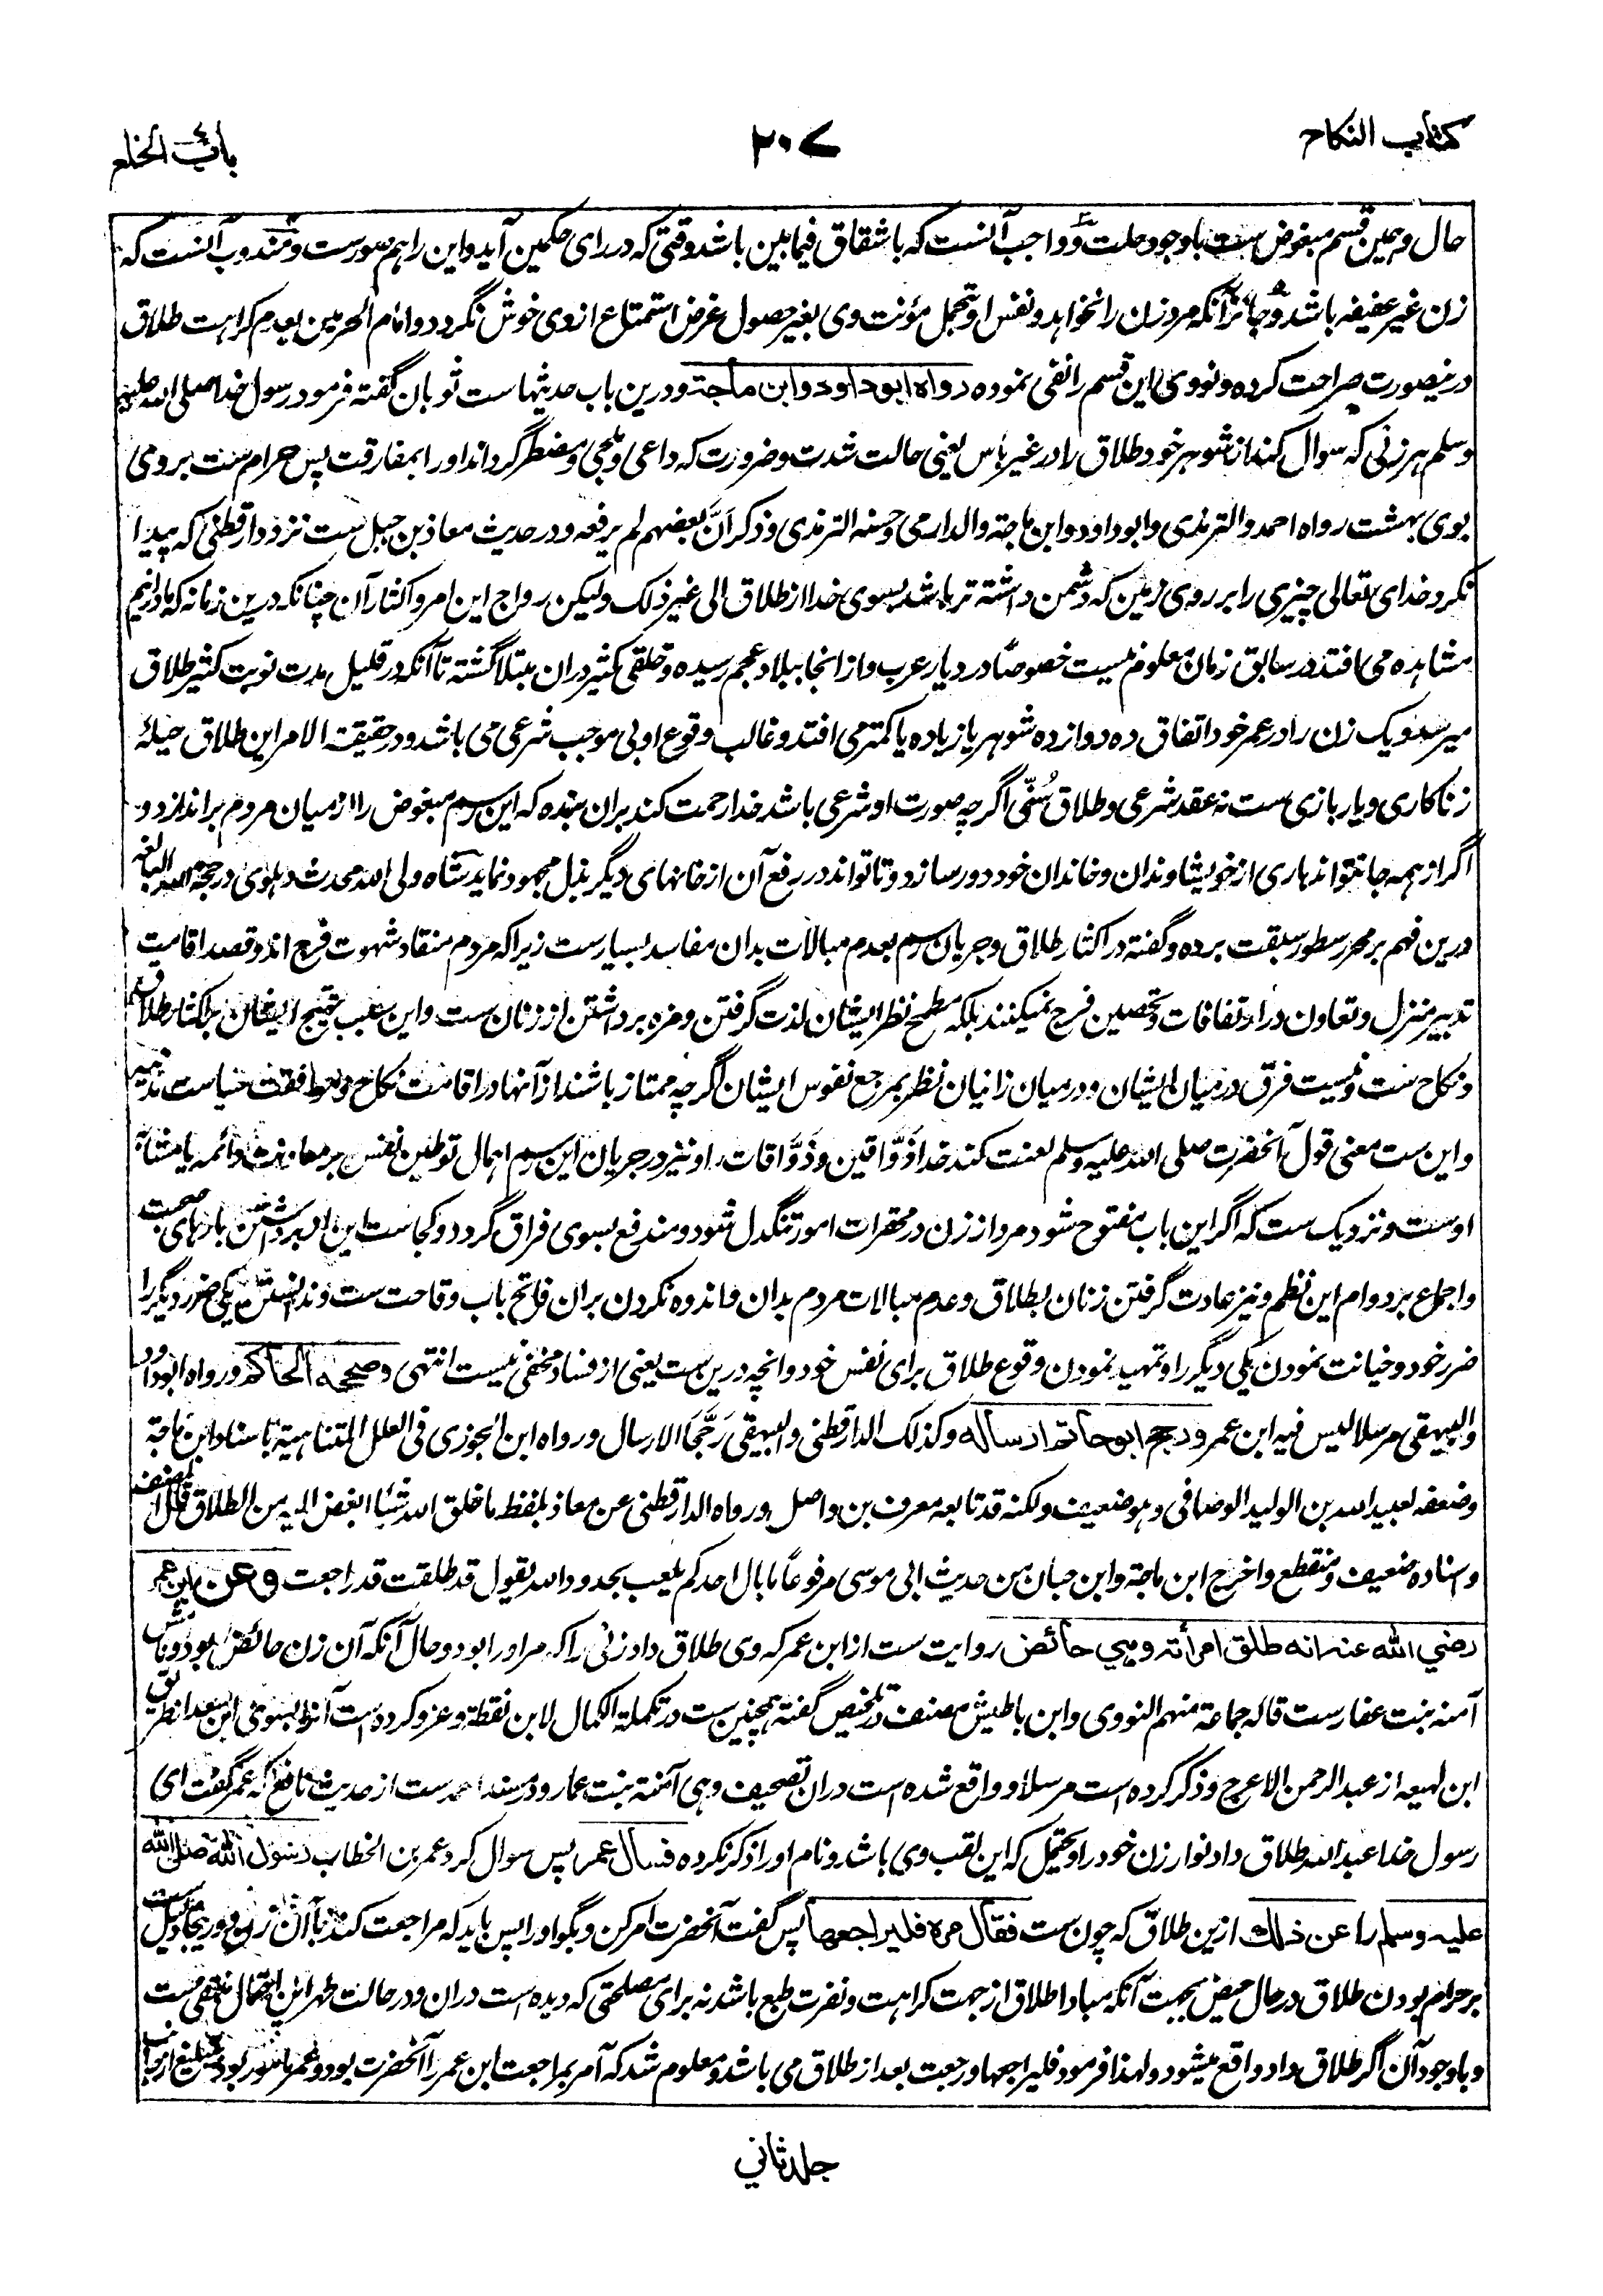 کتاب النکاح
۲۰۷
باب الخلع
حال و همین قسم مبغوض ست باوجود حلت و واجب آنست که با شقاق فیما بین باشد وقتی که در رای حکمین آید و این را هم صورست و مندوب آنست که
زن غیر عفیفه باشد و جائز آنکه مرد زن را نخواهد و نفس او تحمل مؤنت وی بغیر حصول غرض استمتاع از وی خوش نگردد و امام الحرمین بعدم کراهت طلاق
درینصورت صراحت کرده و نووی این قسم را نفی نموده رواه ابو داود وابن ماجة و درین باب حدیثهاست ثوبان گفته فرمود رسول خدا صلی الله علیه
وسلم هر زنی که سوال کند از شوهر خود طلاق را در غیر باس یعنی حالت شدت و ضرورت که داعی و ملجی و مضطر گرداند او را بمفارقت پس حرام ست بر وی
بوی بهشت رواه احمد والترمذی وابوداود وابن ماجة والدارمی وحسنه الترمذی وذکر ان بعضهم لم یرفعه و در حدیث معاذ بن جبل ست نزد دارقطنی که پیدا
نکرد خدای تعالی چیزی را بر روی زمین که دشمن داشته تر باشد بسوی خدا از طلاق الی غیر ذلک ولیکن رواج این امر و اکثار آن چنانکه درین زمانه که ما درانیم
مشاهده می افتد در سابق زمان معلوم نیست خصوصا در دیار عرب و از انجا ببلاد عجم رسیده و خلقی کثیر دران مبتلا گشته تا آنکه در قلیل مدت نوبت کثیر طلاق
میرسد و یک زن را در عمر خود اتفاق ده دوازده شوهر یا زیاده یا کمتر می افتد و غالب وقوع او بی موجب شرعی می باشد و در حقیقت الامر این طلاق حیلهٔ
زناکاری و یاربازی ست نه عقد شرعی و طلاق سُنّی اگرچه صورت او شرعی باشد خدا رحمت کند بران بنده که این رسم مبغوض را از میان مردم براندازد و
اگر از همه جا نتواند باری از خویشاوندان و خاندان خود دور سازد و تا تواند در رفع آن از خانهای دیگر بذل مجهود نماید شاه ولی الله محدث دهلوی در حجة الله البالغه
درین فهم بر محرر سطور سبقت برده و گفته در اکثار طلاق و جریان رسم بعدم مبالات بدان مفاسد بسیارست زیراکه مردم منقاد شهوت فرج اند و قصد اقامت
تدبیر منزل و تعاون در ارتفاقات و تحصین فرج نمیکنند بلکه مطمح نظر ایشان لذت گرفتن و مزه برداشتن از زنان ست و این سبب تهییج ایشان بر اکثار طلاق
و نکاح ست و نیست فرق در میان ایشان و در میان زانیان نظر بمرجع نفوس ایشان اگرچه ممتاز باشند از آنها در اقامت نکاح و موافقت سیاست
و این ست معنی قول آنحضرت صلی الله علیه وسلم لعنت کند خدا ذَوَّاقین و ذَوَّاقات را و نیز در جریان این رسم اهمال توطین نفس بر معاونت دائمه یا مشابه
اوست و نزدیک ست که اگر این باب مفتوح شود مرد از زن در محقرات امور تنگدل شود و مندفع بسوی فراق گردد و کجاست این از برداشتن بارهای صحبت
و اجماع بر دوام این نظم و نیز عادت گرفتن زنان بطلاق و عدم مبالات مردم بدان و اندوه نکردن بران فاتح باب وقاحت ست و ندانستن یکی ضرر دیگر را
ضرر خود و خیانت نمودن یکی دیگر را و تمهید نمودن وقوع طلاق برای نفس خود و انچه درین ست یعنی از فساد مخفی نیست انتهی وصححه الحاکم ورواه ابوداود
والبیهقی مرسلا لیس فیه ابن عمر ورجح ابو حاتم ارساله وکذلک الدارقطنی والبیهقی رَجَّحَا الارسال ورواه ابن الجوزی فی العلل المتناهیة باسناد ابن ماجة
وضعفه لعبید الله بن الولید الوصافی وهو ضعیف ولکنه قد تابعه معرف بن واصل ورواه الدارقطنی عن معاذ بلفظ ما خلق الله شیئا ابغض الیه من الطلاق قال المصنف
واسناده ضعیف ومنقطع واخرج ابن ماجة وابن حبان من حدیث ابی موسی مرفوعا ما بال احدکم یلعب بحدود الله یقول قد طلقت قد راجعت وعن ابن عمر
رضي الله عنه انه طلق امرأته وهي حائض روایت ست از ابن عمر که وی طلاق داد زنی را که مر او را بود و حال آنکه آن زن حائض بود و نامش
آمنه بنت غفارست قاله جماعة منهم النووی وابن باطیش مصنف در تلخیص گفته همچنین ست در تکملة الکمال لابن نقطة و عزو کرده است آنرا بسوی ابن سعد از طریق
ابن لهیعه از عبدالرحمن الاعرج و ذکر کرده است مرسلا و واقع شده است دران تصحیف وهی آمنة بنت عمار و در مسند احمد ست از حدیث نافع که عمر گفت ای
رسول خدا عبدالله طلاق داد نوار زن خود را و یحتمل که این لقب وی باشد و نام او را ذکر نکرده فسأل عمر پس سوال کرد عمر بن الخطاب رسول الله صلی الله
علیه وسلم را عن ذلك ازین طلاق که چون ست فقال مره فلیراجعها پس گفت آنحضرت امر کن و بگو او را پس باید که مراجعت کند باآن زن و درینجا دلیل ست
بر حرام بودن طلاق در حال حیض بجهت آنکه مبادا طلاق از جهت کراهت و نفرت طبع باشد نه برای مصلحتی که دیده است دران و در حالت طهر این احتمال منتفی ست
و باوجود آن اگر طلاق داد واقع میشود و لهذا فرمود فلیراجعها و رجعت بعد از طلاق می باشد و معلوم شد که آمر بمراجعت ابن عمر را آنحضرت بود و عمر مامور بود تبلیغ از جانب
جلد ثاني